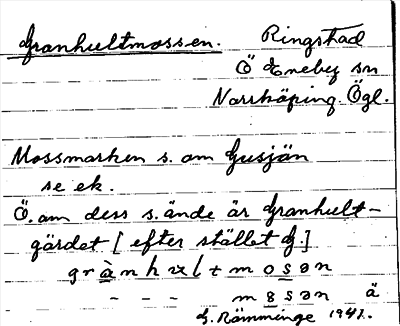 Granhultmossen. Ringstad
Ö Eneby sn
Norrköping Ögl.
Mossmarken s. om Gusjön
se ek.
Ö. om dess s. ände är Granhult-
gärdet [efter stället G.]
grànhult mosən
- - - mosən ä
G. Rämminge 1941.